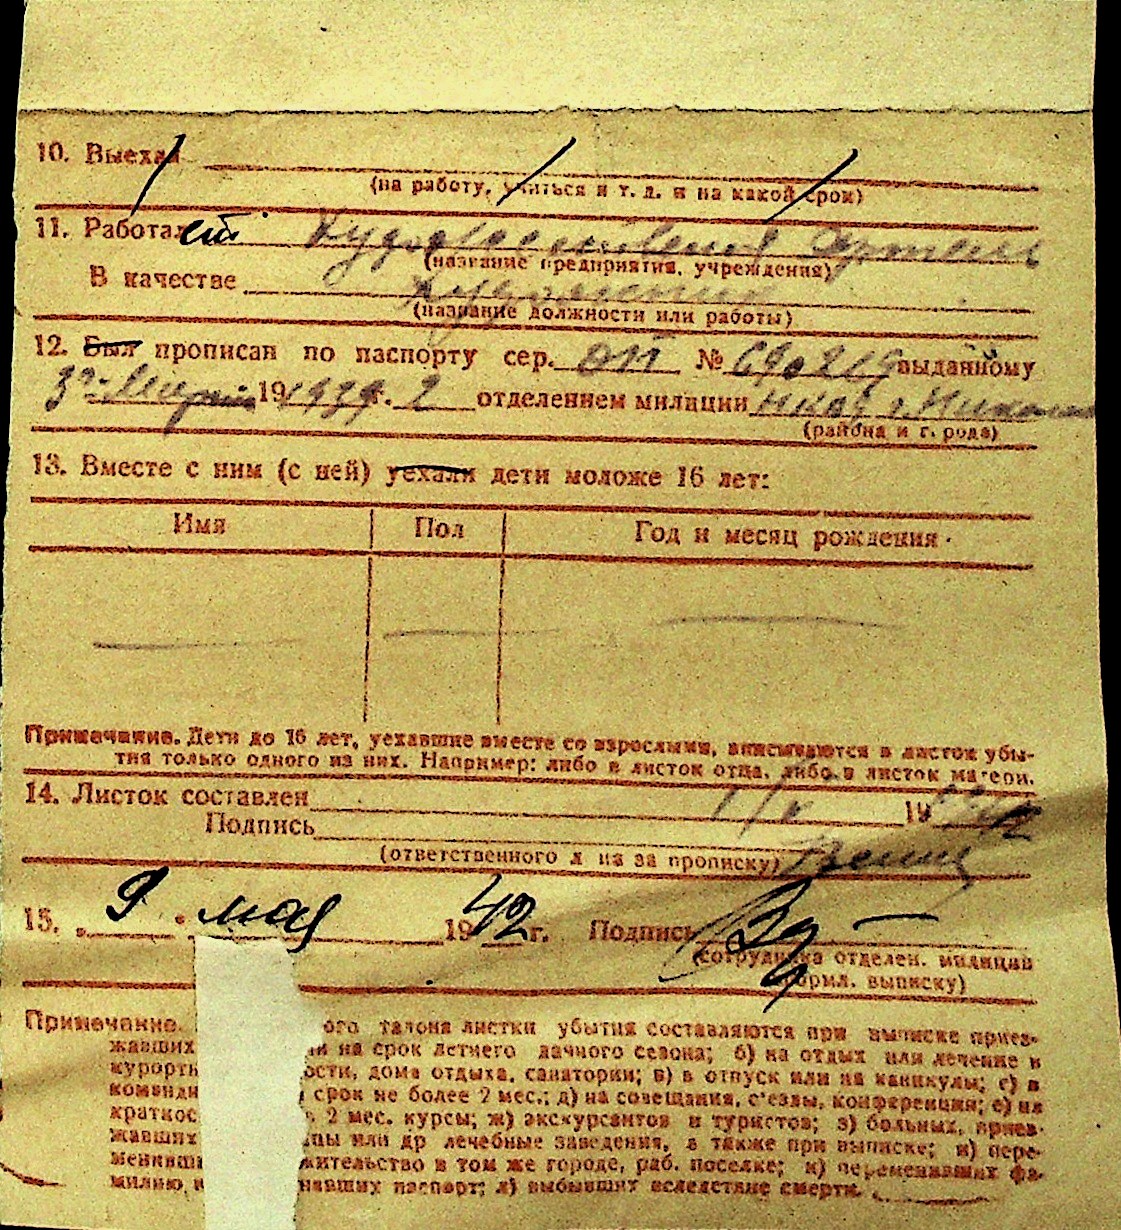 10. Выехал
(на работу, учиться и т. д. и на какой срок)
11. Работает Художественная Артель
(название предприятия, учреждения)
В качестве Художник
(название должности или работы)
12. Был прописан по паспорту сер. № 690219 выданному
1939 г. 2 отделением милиции НКВД г.
(района и города)
13. Вместе с ним (с ней) уехали дети моложе 16 лет:
Имя Пол Год и месяц рождения
Примечание. Дети до 16 лет, уехавшие вместе со взрослыми, вписываются в листок убы-
тия только одного из них. Например: либо в листок отца, либо в листок матери.
14. Листок составлен 1/V 1942
Подпись
(ответственного л на за прописку)
15. „ 9 " мая 1942 г. Подпись
(сотрудника отделен. милиции
форм. выписку)
Примечание. ого талона листки убытия составляются при выписке приез-
жавших ли на срок летнего дачного сезона; б) на отдых или лечение в
курортн ости, дома отдыха, санатории; в) в отпуск или на каникулы; г) в
команди срок не более 2 мес.; д) на совещания, с'езды, конференции; е) на
краткос 2 мес. курсы; ж) экскурсантов и туристов; з) больных, приез-
жавших цы или др лечебные заведения, а также при выписке; и) пере-
менивши жительство в том же городе, раб. поселке; к) переменивших фа-
милию и нявших паспорт; л) выбывших вследствие смерти.